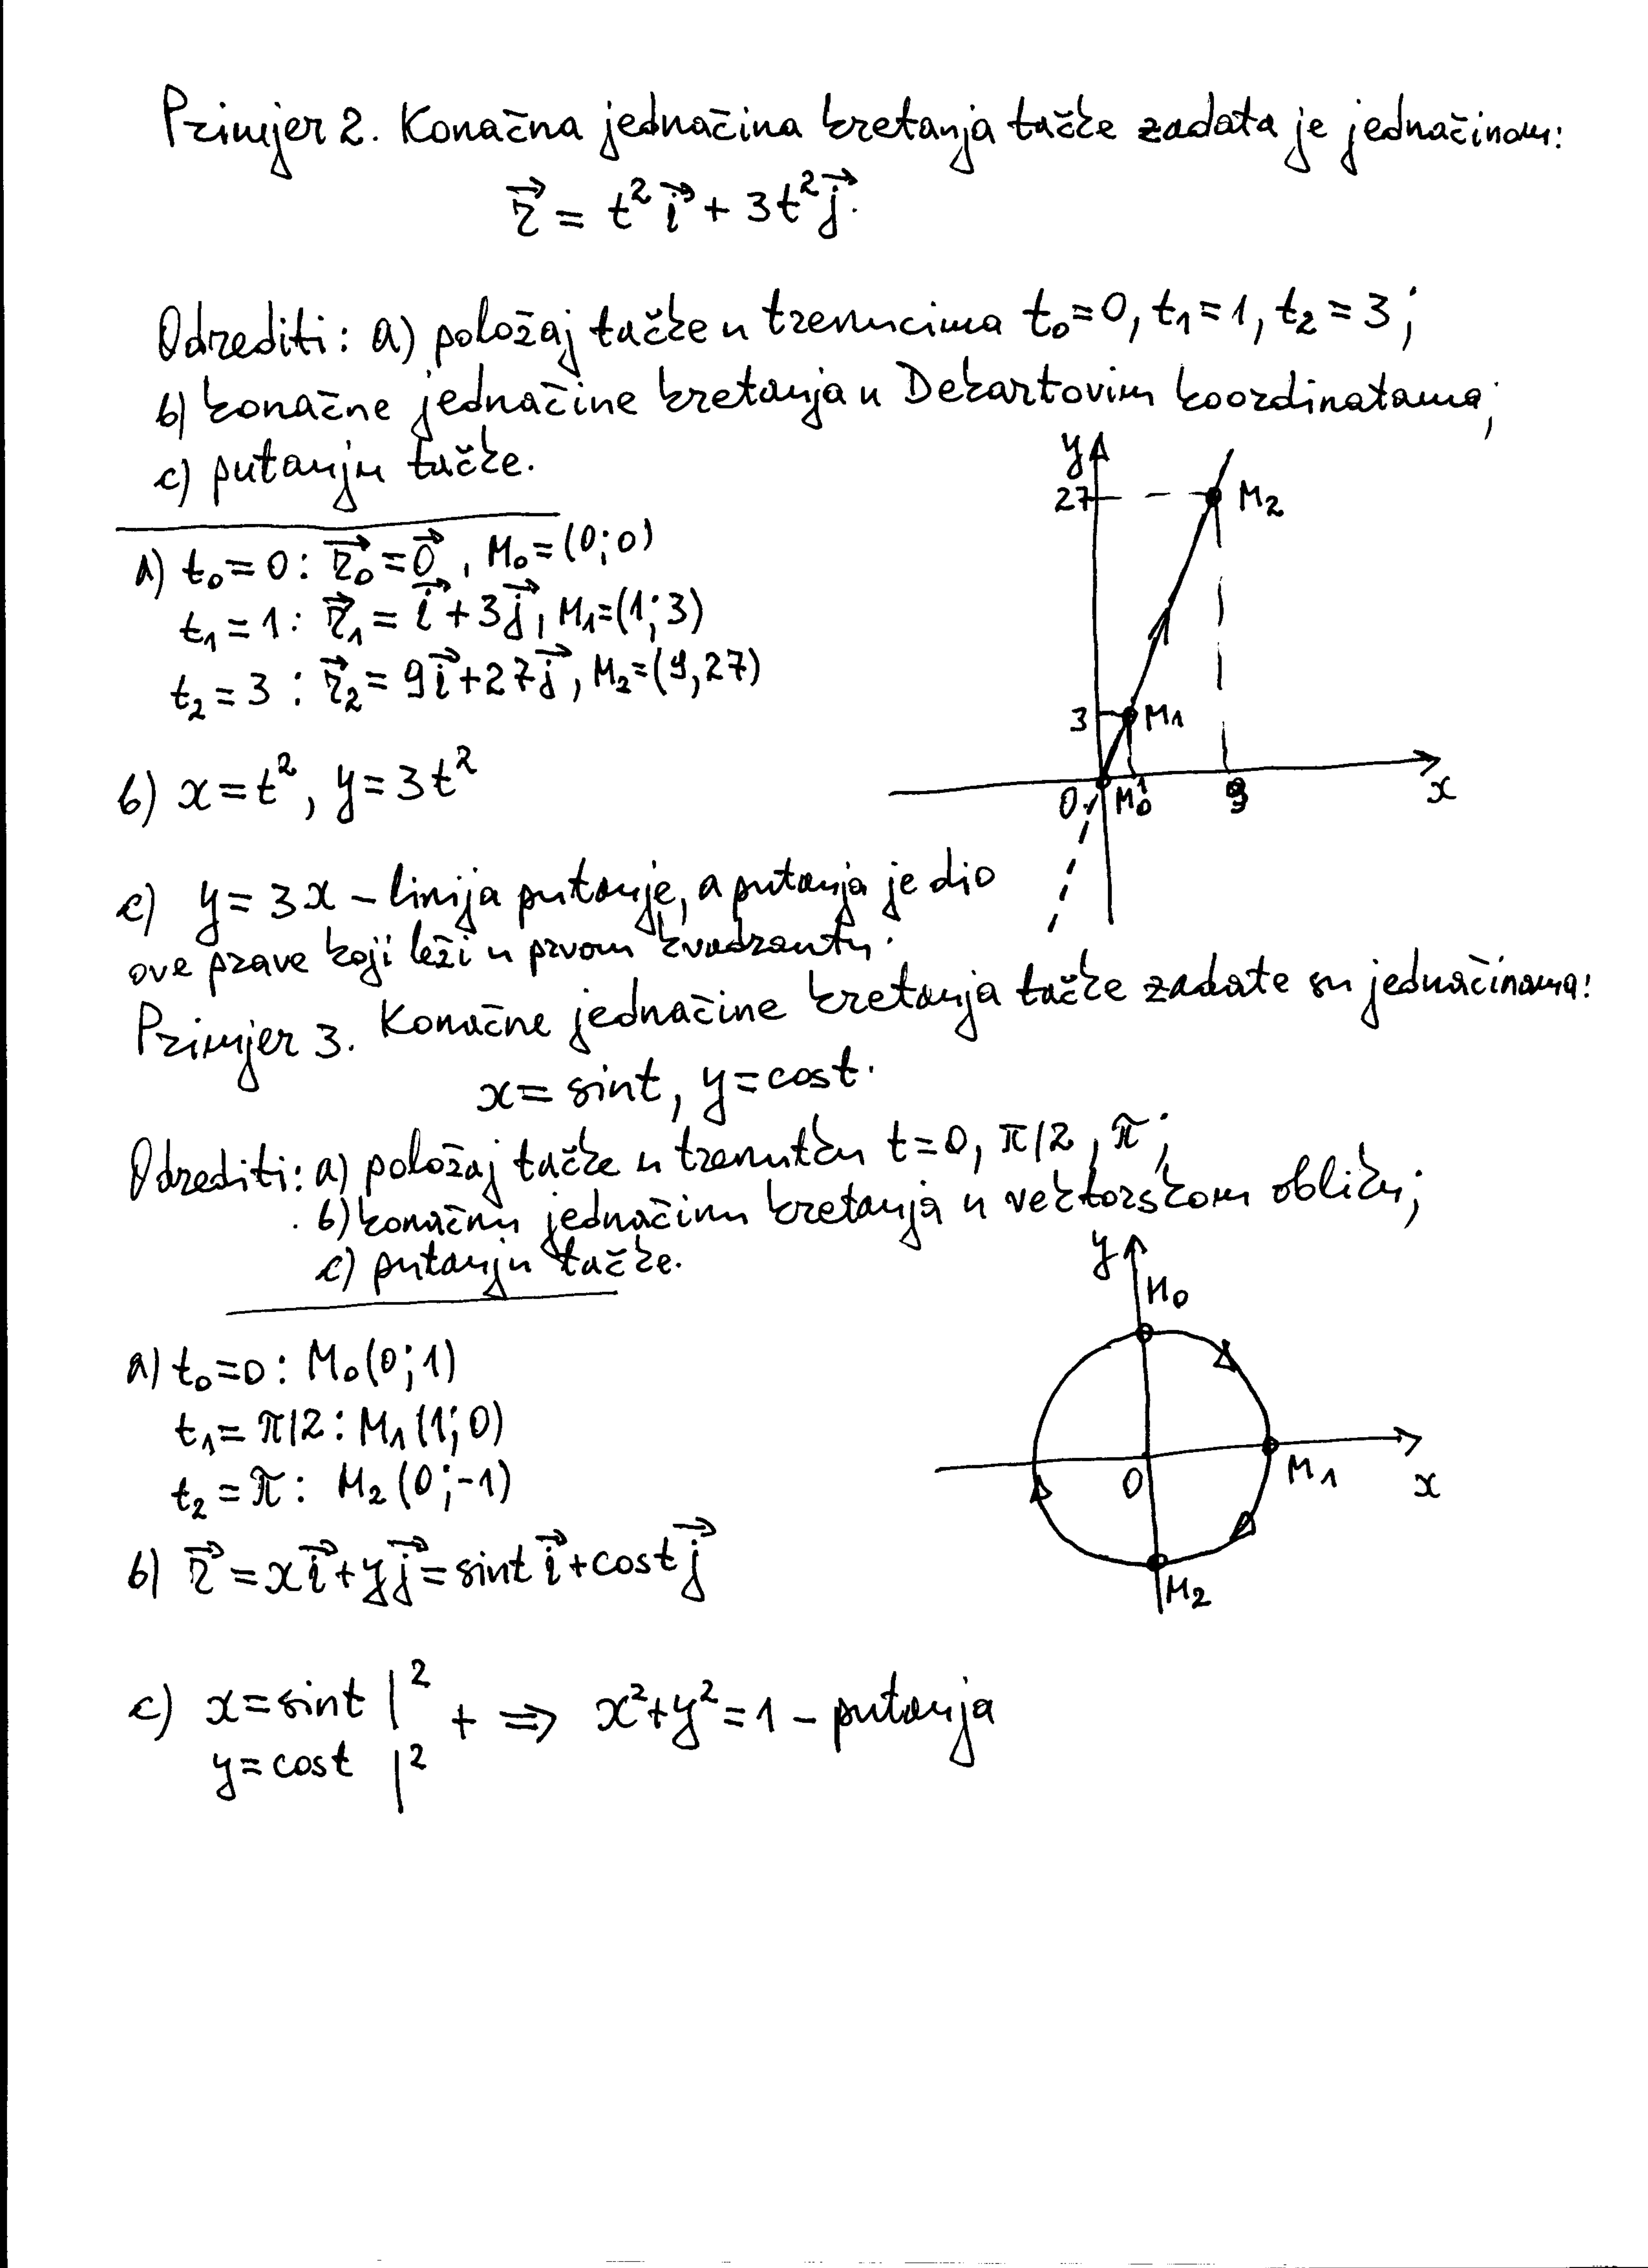 Primjer 2. Konačna jednačina kretanja tačke zadata je jednačinom:
r⃗ = t² i⃗ + 3t² j⃗.
Odrediti: a) položaj tačke u trenucima t₀=0, t₁=1, t₂=3;
b) konačne jednačine kretanja u Dekartovim koordinatama;
c) putanju tačke.
a) t₀=0: r⃗₀=0⃗, M₀=(0;0)
t₁=1: r⃗₁= i⃗+3j⃗, M₁=(1;3)
t₂=3: r⃗₂= 9i⃗+27j⃗, M₂=(9,27)
y
27
M₂
3
M₁
0
M₀
1
9
x
b) x=t², y=3t²
c) y=3x – linija putanje, a putanja je dio
ove prave koji leži u prvom kvadrantu.
Primjer 3. Konačne jednačine kretanja tačke zadate su jednačinama:
x= sint, y=cost.
Odrediti: a) položaj tačke u trenutku t=0, π/2, π;
b) konačnu jednačinu kretanja u vektorskom obliku;
c) putanju tačke.
a) t₀=0: M₀(0;1)
t₁=π/2: M₁(1;0)
t₂=π: M₂(0;-1)
y
M₀
0
M₁
x
M₂
b) r⃗=xi⃗+yj⃗=sint i⃗+cost j⃗
c) x=sint |² + ⇒ x²+y²=1 – putanja
y=cost |²